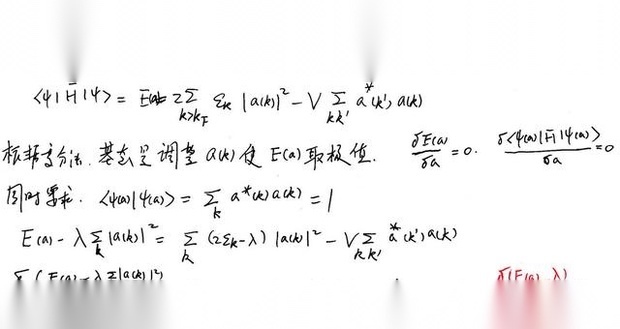 ⟨ψ|H̄|ψ⟩ = E(a) = 2∑_{k>k_F} ε_k |a(k)|² − V ∑_{kk'} a*(k') a(k)
根据变分法. 基态是调整 a(k) 使 E(a) 取极值. δE(a)/δa = 0. δ⟨ψ(a)|H̄|ψ(a)⟩/δa = 0
同时要求. ⟨ψ(a)|ψ(a)⟩ = ∑_k a*(k) a(k) = 1
E(a) − λ∑_k |a(k)|² = ∑_k (2ε_k − λ) |a(k)|² − V∑_{kk'} a*(k') a(k)
δ(E(a) − λ∑|a(k)|²) δ(E(a) λ)